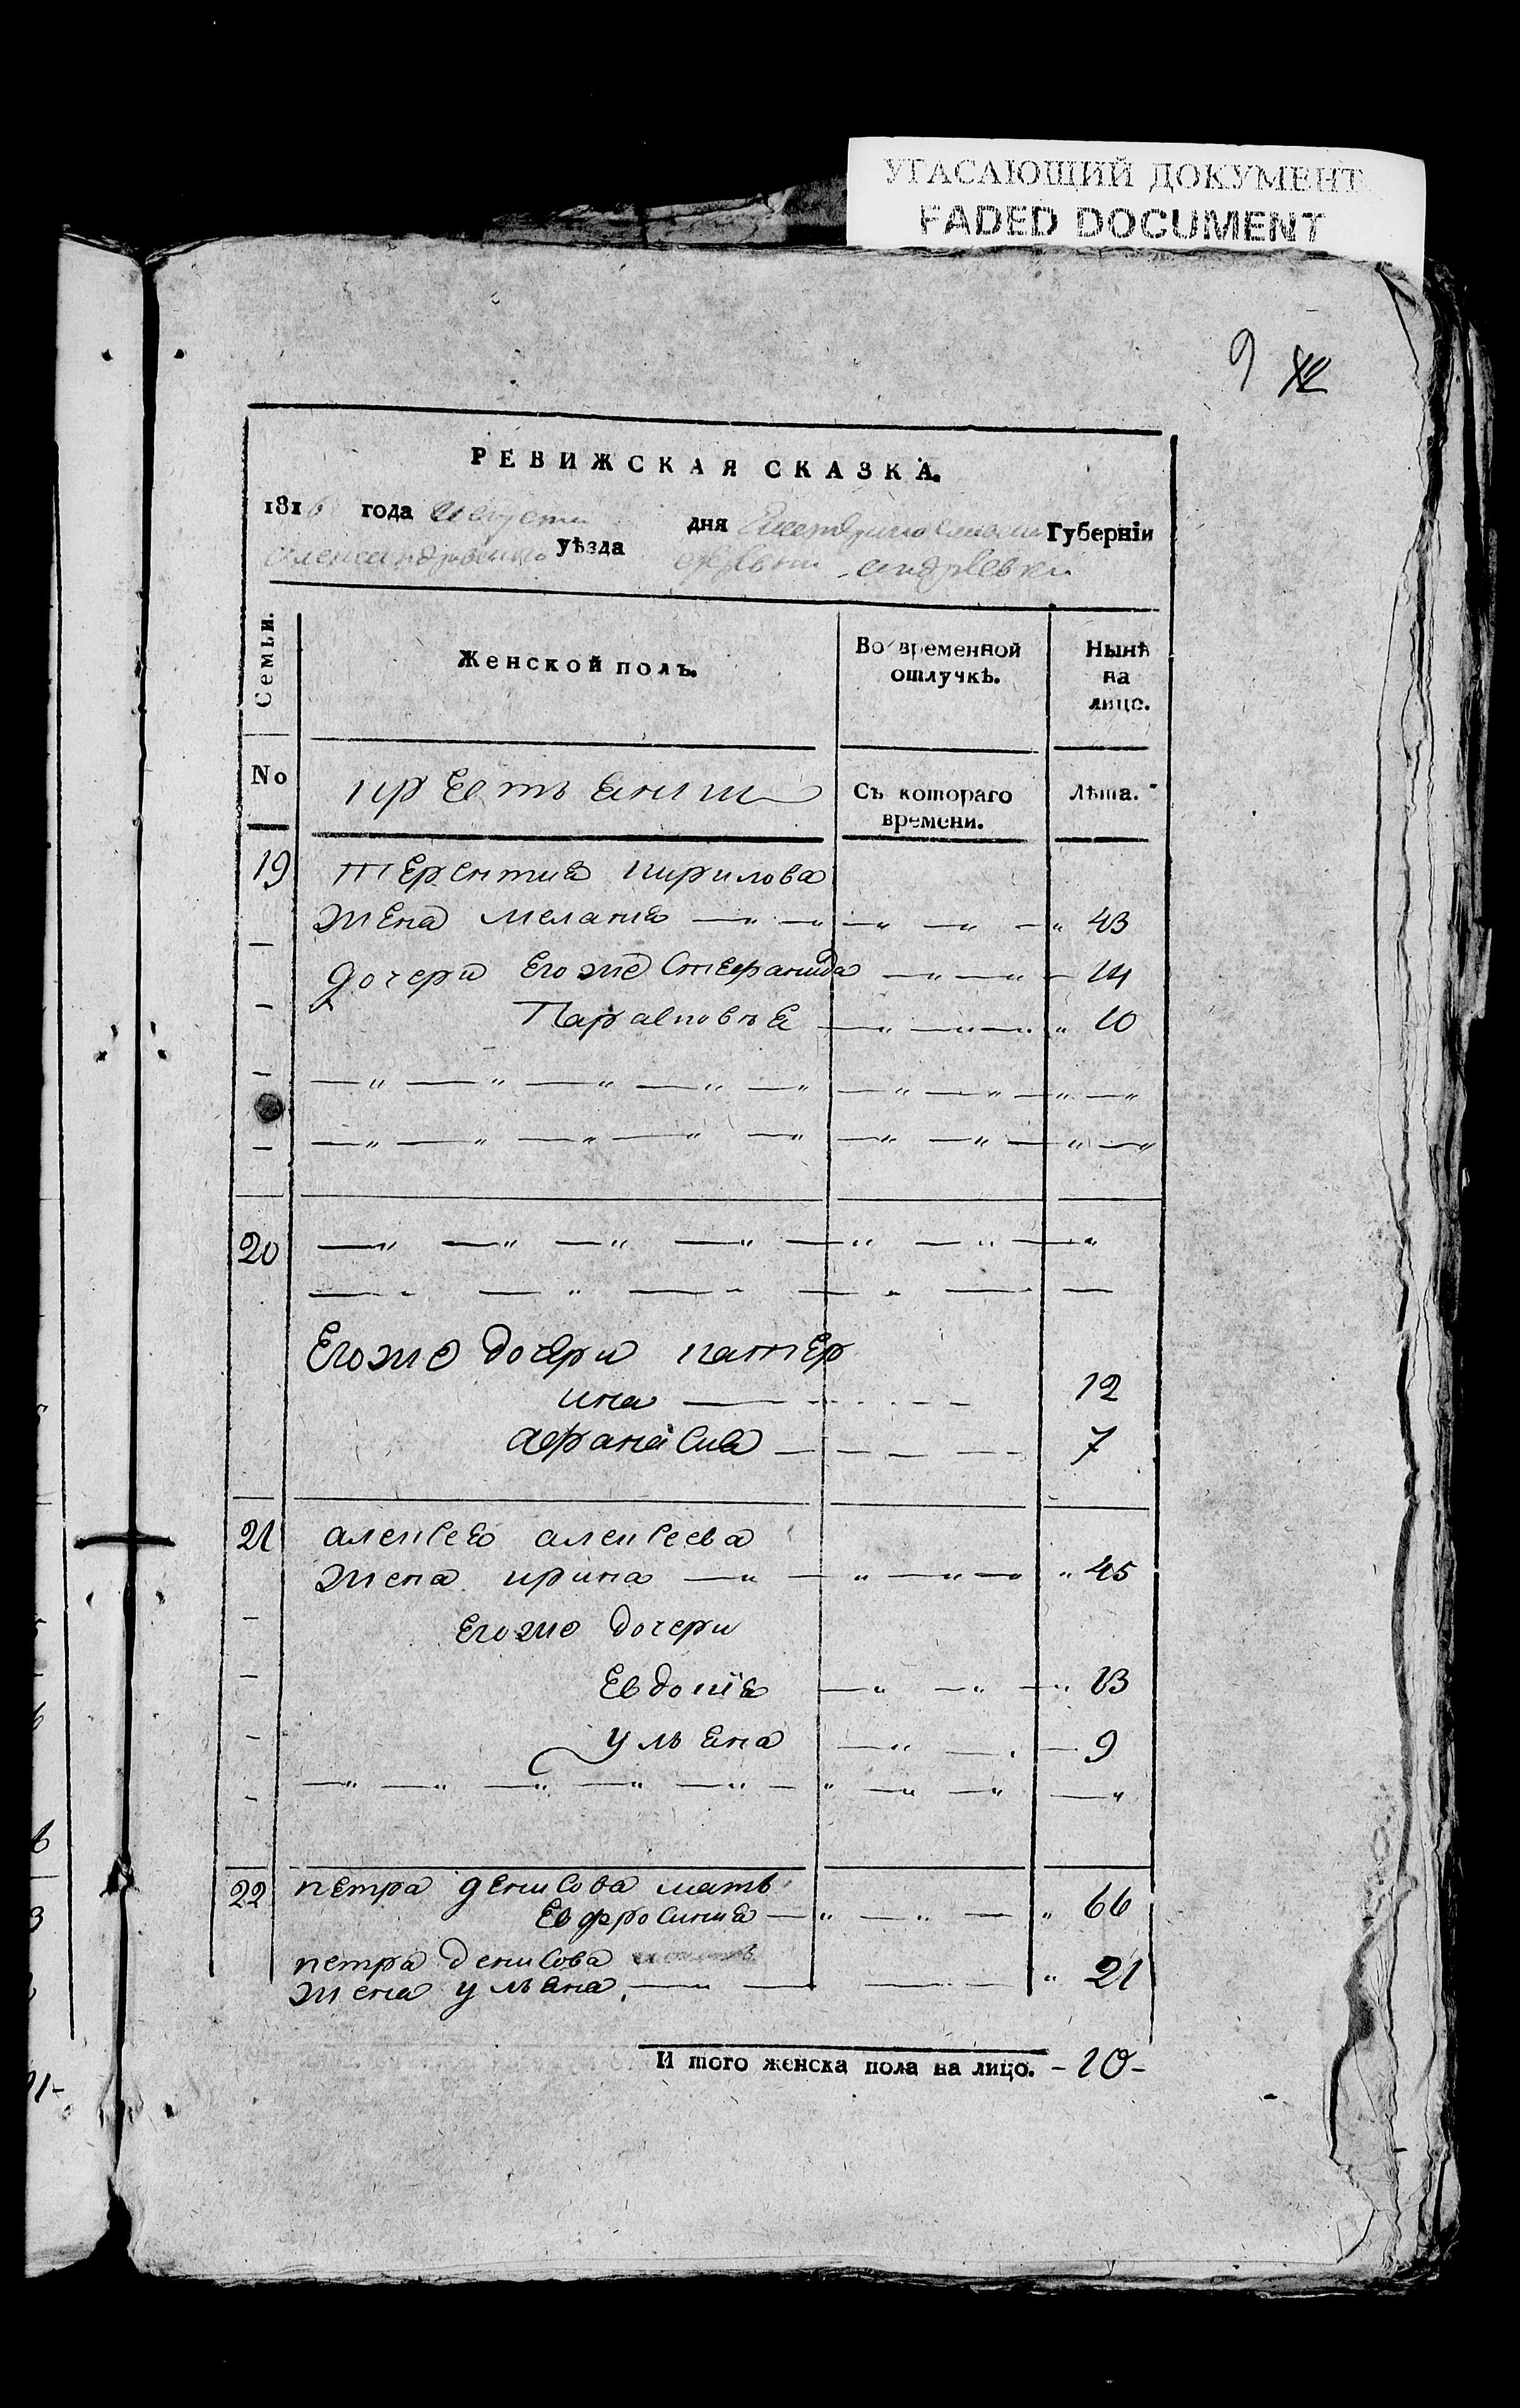 УГАСАЮЩИЙ ДОКУМЕНТ
FADED DOCUMENT
9 12
РЕВИЖСКАЯ СКАЗКА.
1816 года августа дня Екатеринославской Губерніи
Александровского уѣзда деревни андревки
Семьи.
Женской полъ.
Во временной
отлучкѣ.
Нынѣ
на
лицо.
No
крестьянки
Съ котораго
времени.
Лѣта.
19 терентия кирилова
жена мелания 43
дочери Егоже Стефанида 14
Парасковья 10
20
Егоже дочери катер
ина 12
афанасия 7
21 алексея алексеева
жена ирина 45
Егоже дочери
Евдокїя 13
ульяна 9
22 петра денисова мать
Евфросиния 66
петра денисова
жена ульяна 21
И того женска пола на лицо. - 10 -